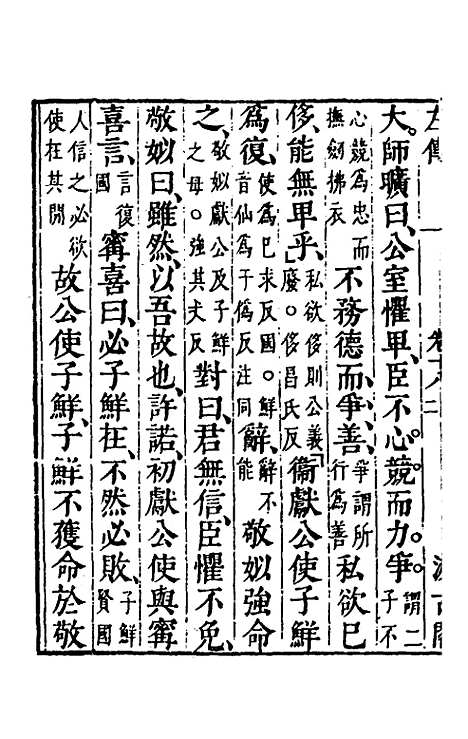 大。師曠曰、公室懼卑、臣不心競。而力爭。謂二子不
心競為忠而撫劒拂衣不務德而爭善、爭謂所行為善私欲已
侈、能無卑乎、私欲侈則公義廢。侈昌氏反衞獻公使子鮮
為復、使為已求反國。鮮音仙為于偽反注同辭、辭不能敬姒強命
之、敬姒獻公及子鮮之母。強其丈反對曰、君無信、臣懼不免、
敬姒曰、雖然、以吾故也、許諾、初獻公使與甯
喜言、言復國甯喜曰、必子鮮在、不然必敗、子鮮賢國
人信之必欲使在其間故公使子鮮、子鮮不獲命於敬